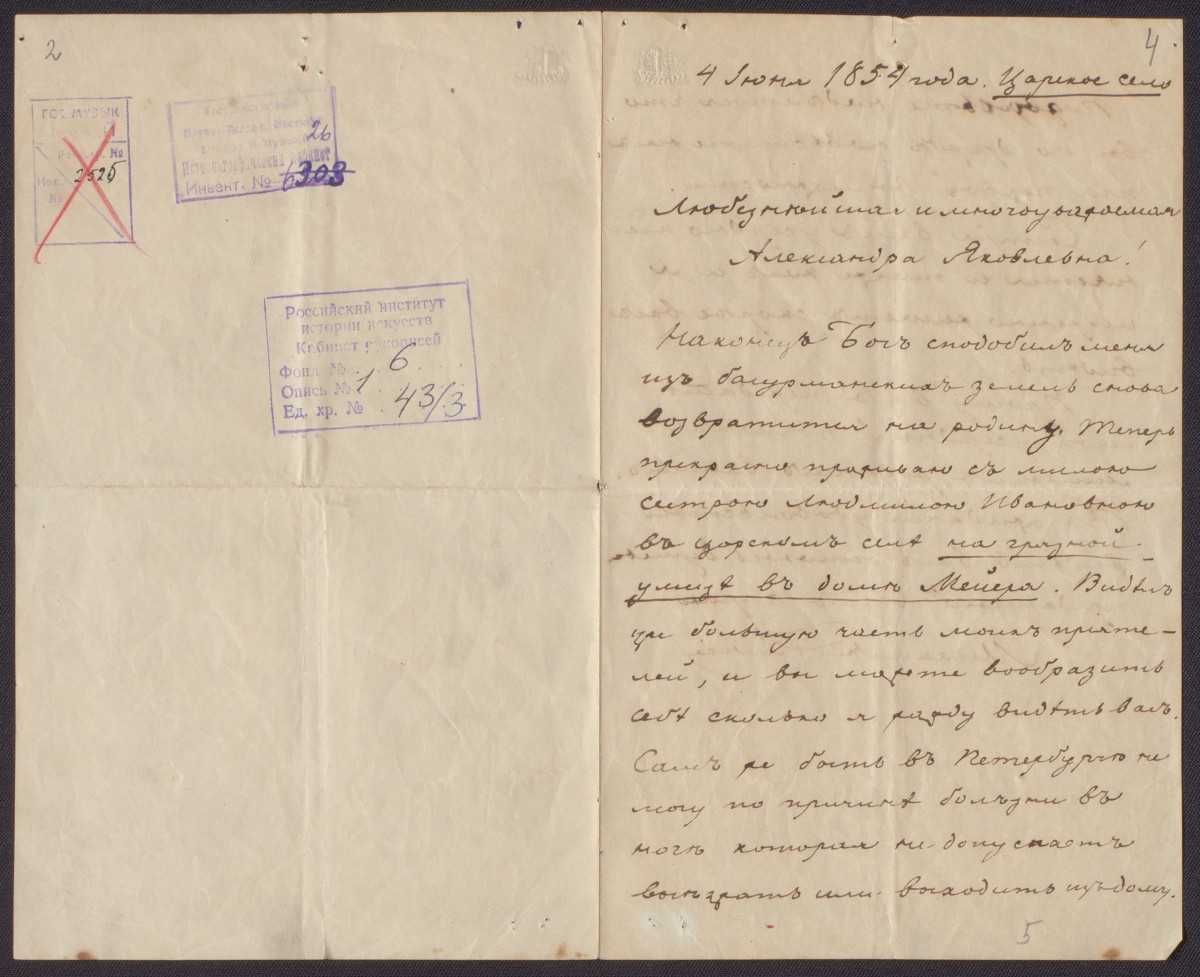 2
ГОС. МУЗЫК
№
2525
№
26
Инвент. № 303
Российский институт
истории искусств
Кабинет рукописей
Фонд № 6
Опись № 1
Ед. хр. № 43/3
4
4 Июня 1854 года. Царское село
Любезнѣйшая и многоуважаемая
Александра Яковлевна!
Наконецъ Богъ сподобилъ меня
изъ басурманскихъ земель снова
возвратится на родину. Теперь
прекрасно проживаю съ милою
сестрою Людмилою Ивановною
въ царскомъ селѣ на грязной
улицѣ въ домѣ Мейера. Видѣлъ
уже большую часть моихъ пріяте-
лей, и вы можете вообразить
себѣ сколько я жажду видѣть васъ.
Самъ же быть въ Петербургѣ не
могу по причинѣ болѣзни въ
ногѣ которая не допускаетъ
выѣзжать или выходить изъ дому.
5